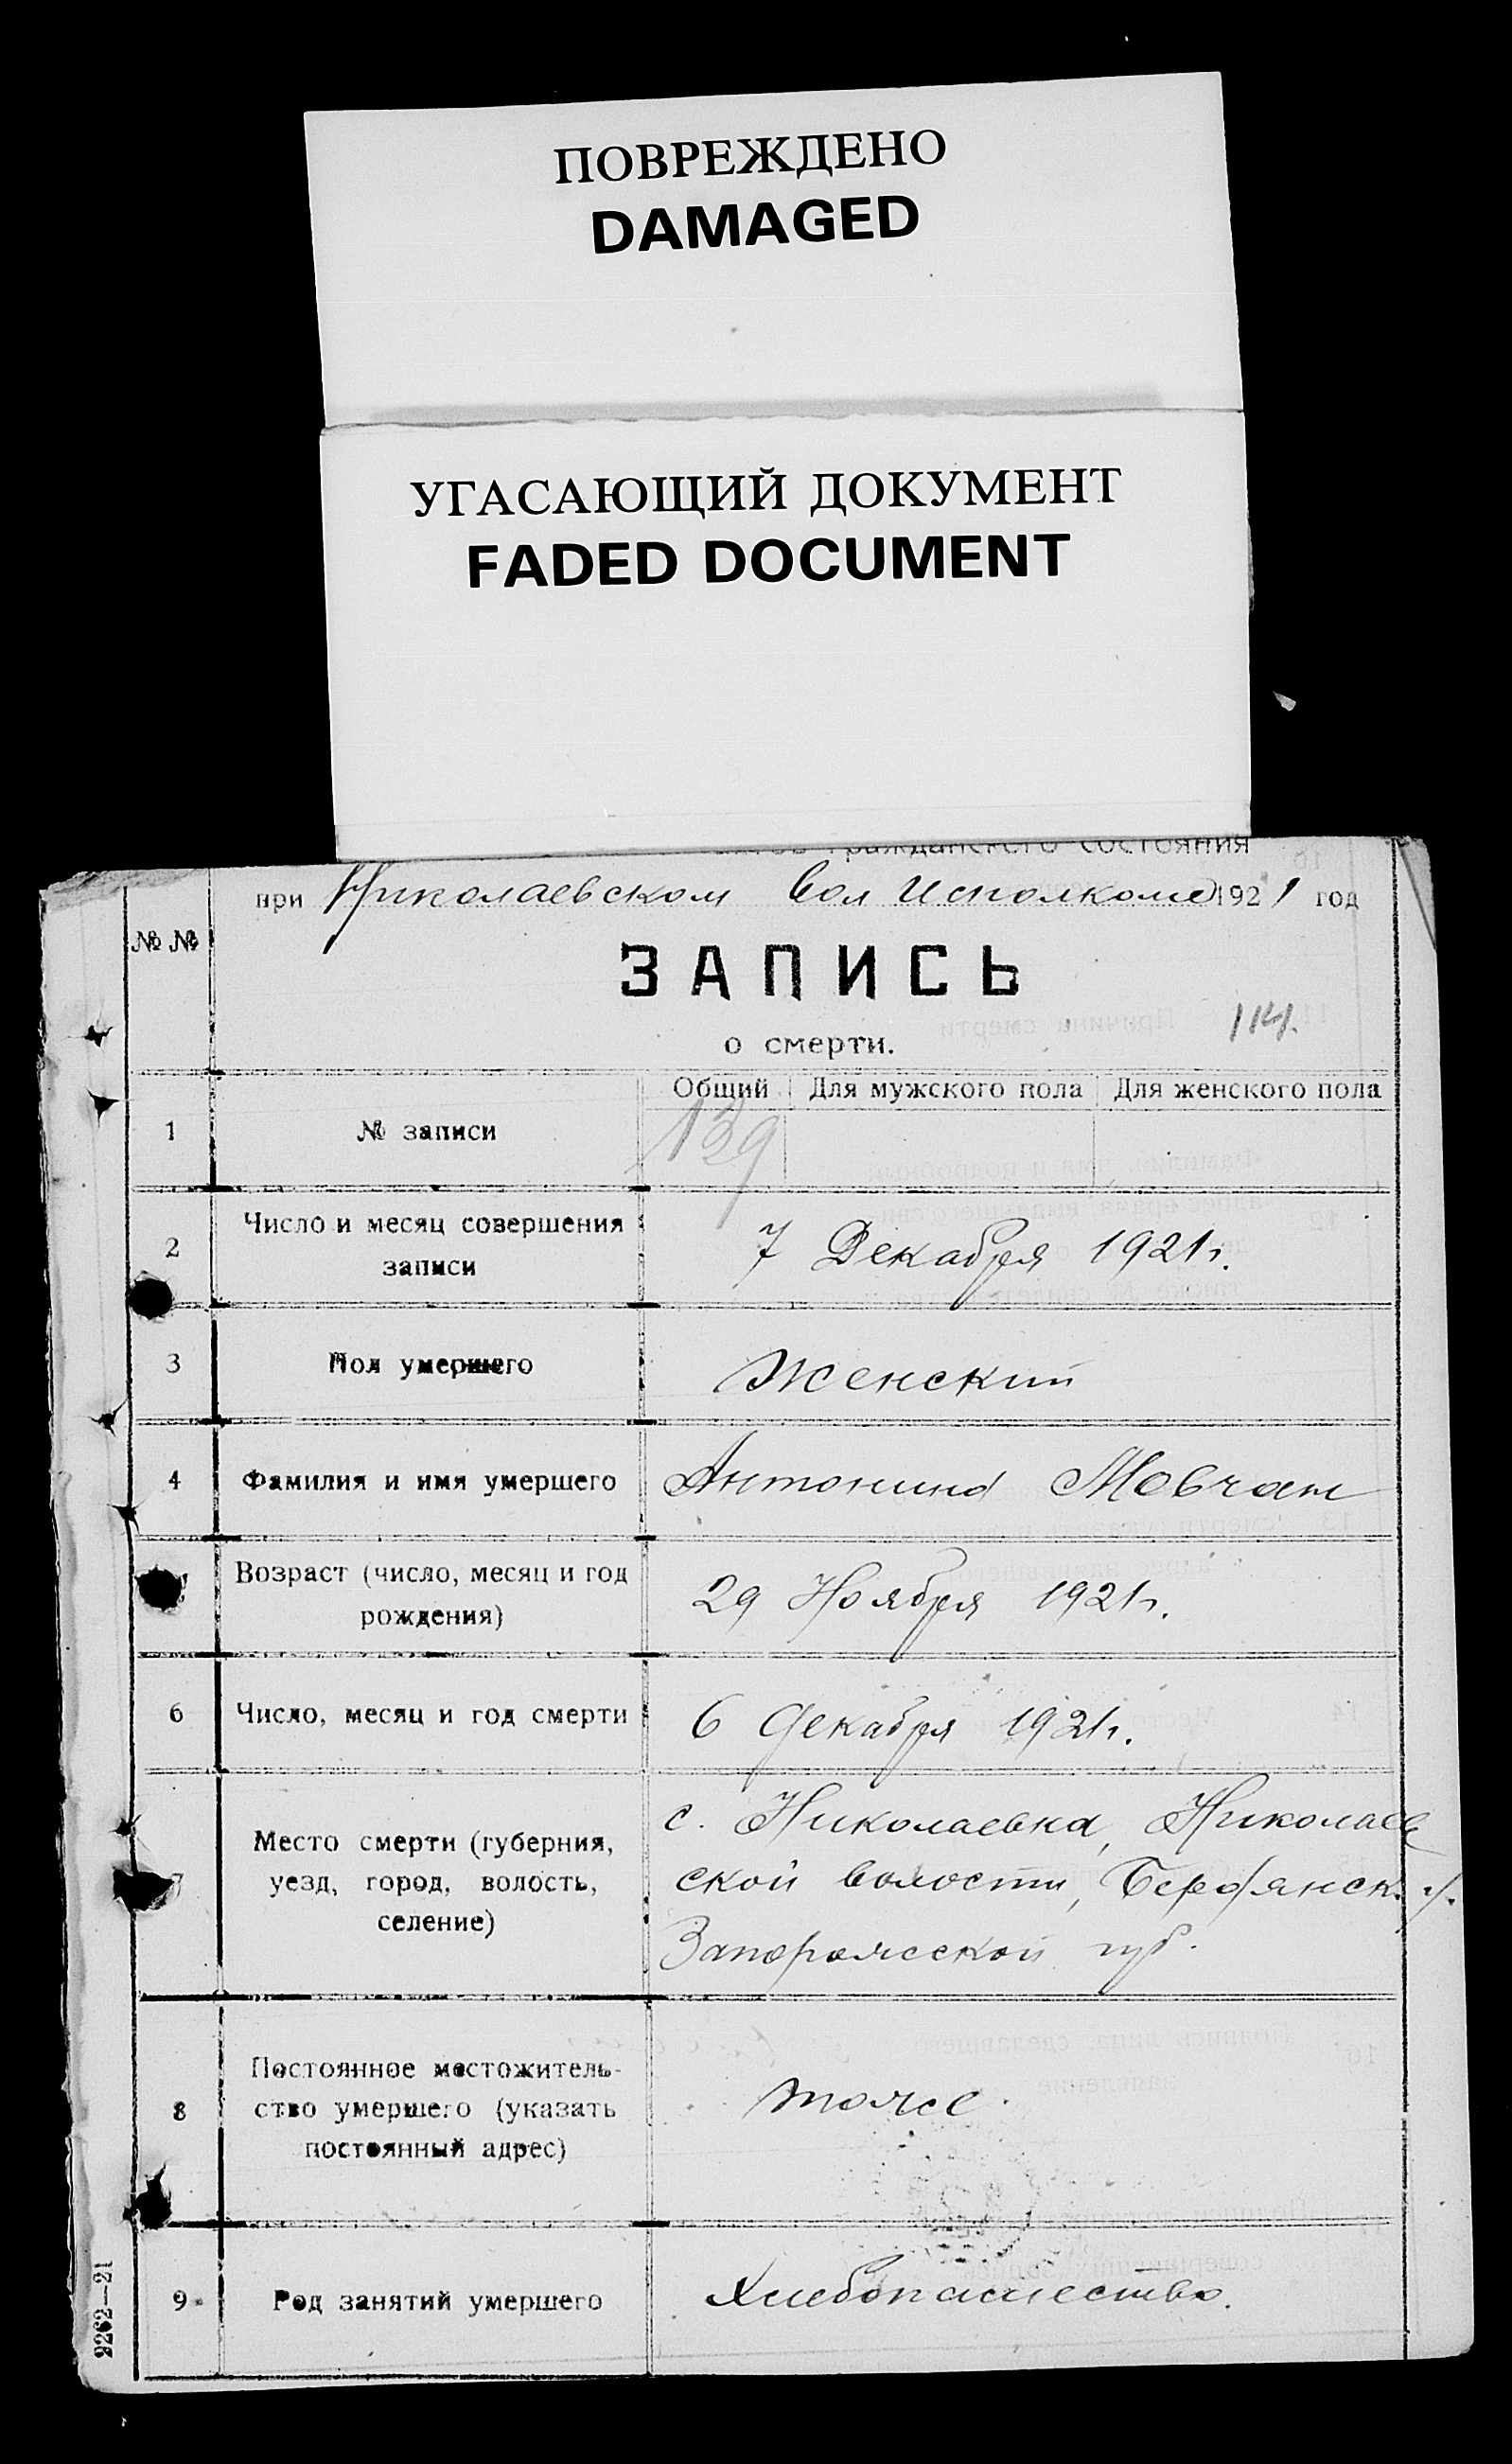 ПОВРЕЖДЕНО
DAMAGED
УГАСАЮЩИЙ ДОКУМЕНТ
FADED DOCUMENT
гражданского состояния
при Николаевском Вол Исполкоме 1921 год
№ №
ЗАПИСЬ
114.
о смерти.
Общий Для мужского пола Для женского пола
1 № записи 139
2 Число и месяц совершения записи
7 Декабря 1921 г.
3 Пол умершего
Женский
4 Фамилия и имя умершего
Антонина Мовчан
Возраст (число, месяц и год
рождения)
29 Ноября 1921 г.
6 Число, месяц и год смерти
6 Декабря 1921 г.
7 Место смерти (губерния,
уезд, город, волость,
селение)
с. Николаевка, Николаев
ской волости, Бердянск. у.
Запорожской губ.
8 Постоянное местожитель-
ство умершего (указать
постоянный адрес)
тоже.
9 Род занятий умершего
Хлебопашество.
2262—21